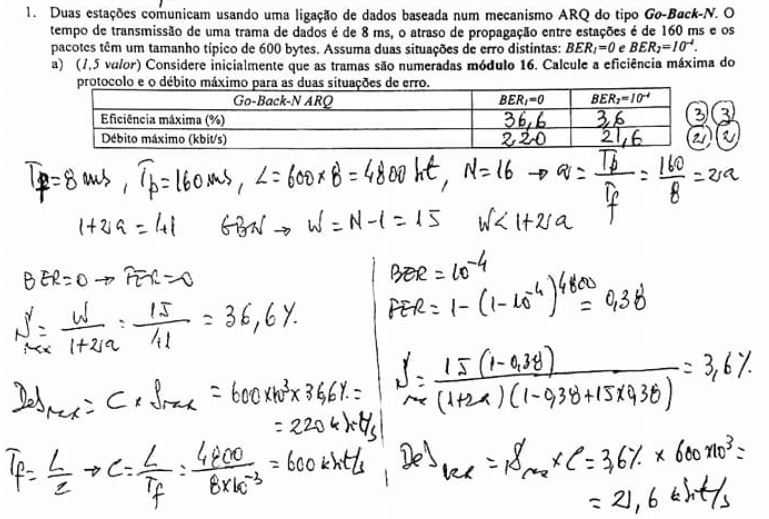 1. Duas estações comunicam usando uma ligação de dados baseada num mecanismo ARQ do tipo Go-Back-N. O
tempo de transmissão de uma trama de dados é de 8 ms, o atraso de propagação entre estações é de 160 ms e os
pacotes têm um tamanho típico de 600 bytes. Assuma duas situações de erro distintas: BER₁=0 e BER₂=10⁻⁴.
a) (1,5 valor) Considere inicialmente que as tramas são numeradas módulo 16. Calcule a eficiência máxima do
protocolo e o débito máximo para as duas situações de erro.
Go-Back-N ARQ BER₁=0 BER₂=10⁻⁴
Eficiência máxima (%) 36,6 3,6 3 3
Débito máximo (kbit/s) 220 21,6 2 2
Tf=8 ms, Tp=160 ms, L=600×8=4800 bit, N=16 → a = Tp/Tf = 160/8 = 20
1+2a = 41 GBN → W = N-1 = 15 W < 1+2a
BER=0 → FER=0
Smax = W/1+2a = 15/41 = 36,6%
Debmax = C × Smax = 600×10³×36,6% =
= 220 kbit/s
Tf = L/C → C = L/Tf = 4800/8×10⁻³ = 600 kbit/s
BER = 10⁻⁴
FER = 1-(1-10⁻⁴)⁴⁸⁰⁰ = 0,38
Smax = 15(1-0,38)/(1+2a)(1-0,38+15×0,38) = 3,6%
Debmax = Smax × C = 3,6% × 600×10³ =
= 21,6 kbit/s